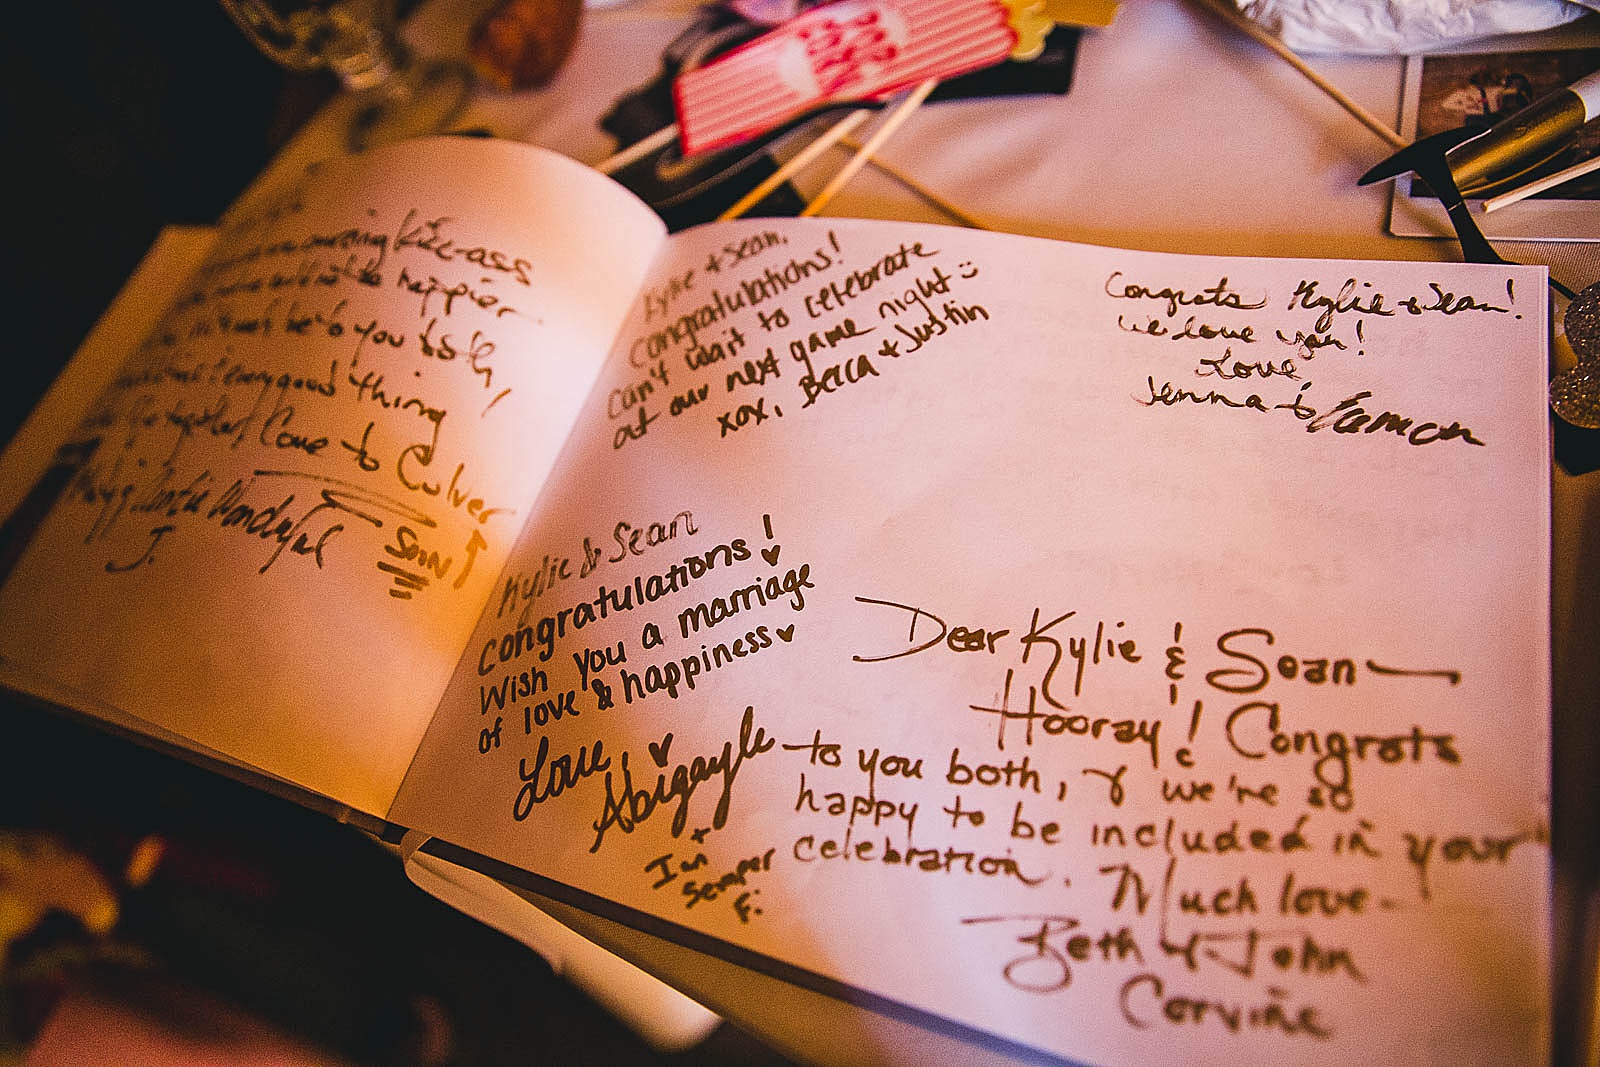 POP
CORN
amazing kick-ass
happier
to you both!
every good thing
together! Come to Culver
Soon!
Auntie Wonderful
J.
Kylie + Sean,
Congratulations!
Can't wait to celebrate
at our next game night :)
xox, Becca + Justin
Congrats Kylie + Sean!
We love you!
Love,
Jenna &
Kylie & Sean
Congratulations!
Wish you a marriage
of love & happiness
Love,
Abigayle
+
Ian
Semper
Fi
Dear Kylie & Sean
Hooray! Congrats
to you both, & we're so
happy to be included in your
celebration. Much love-
Beth & John
Corviñe